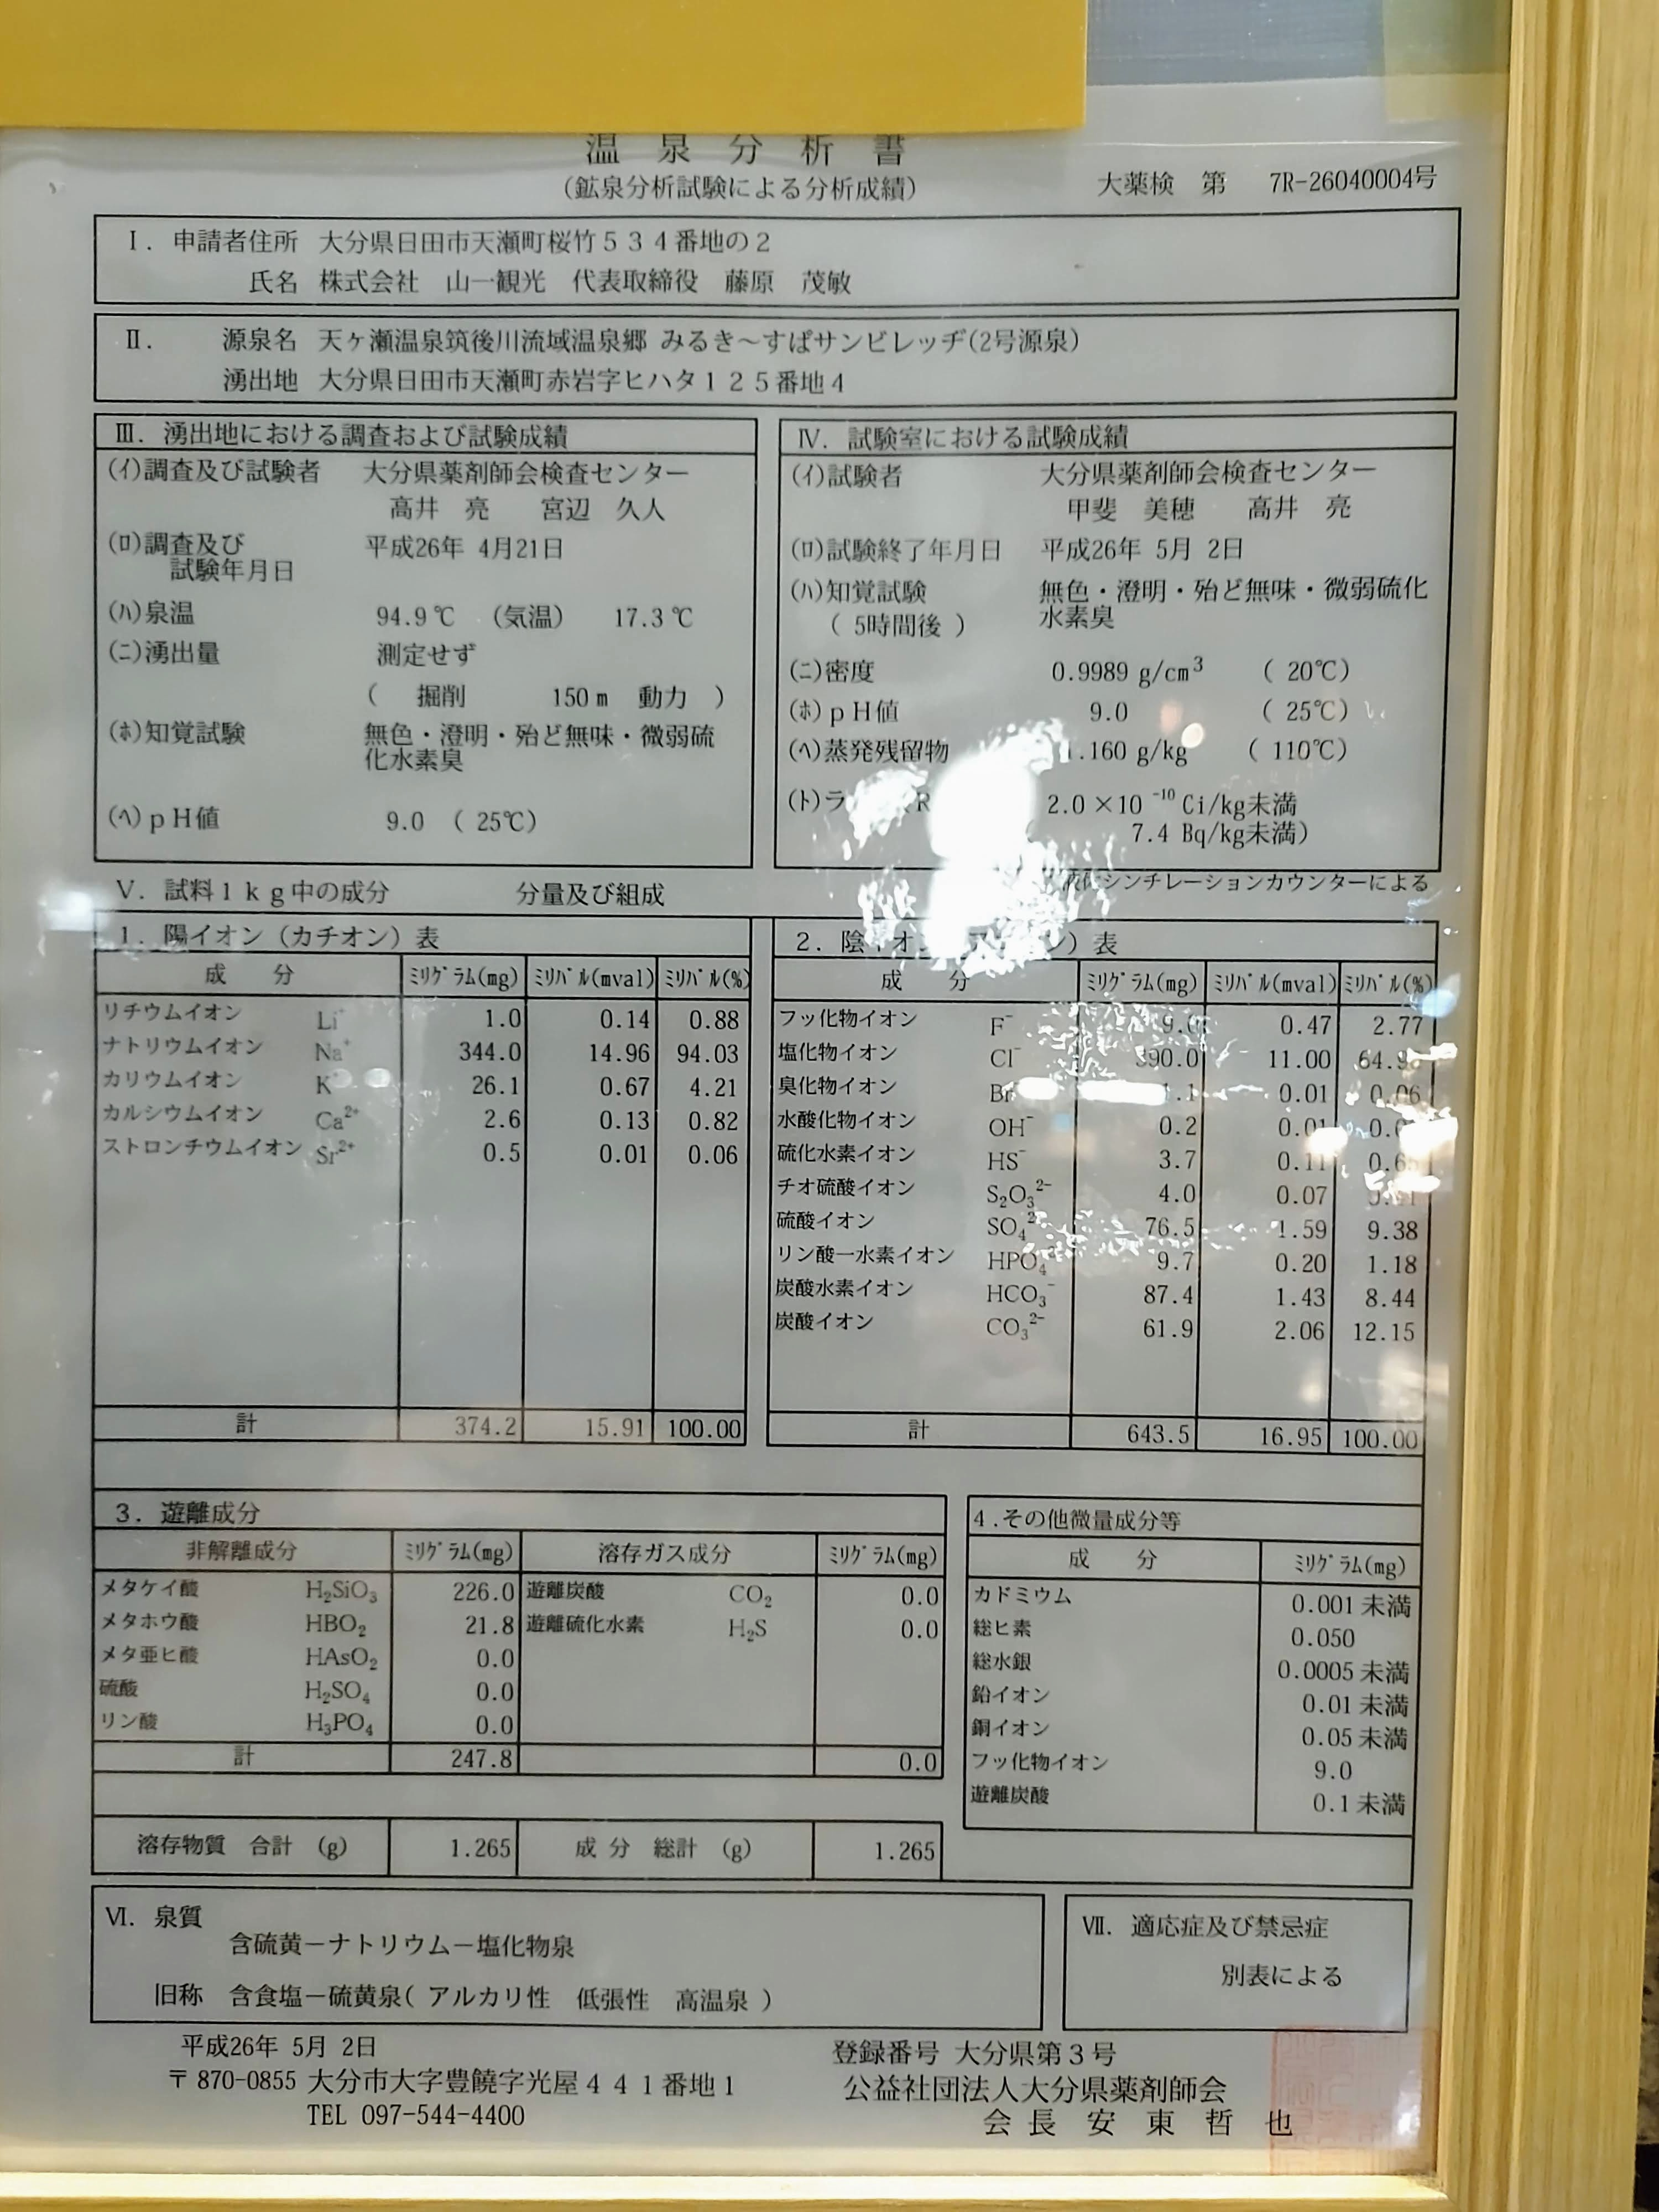 温泉分析書
(鉱泉分析試験による分析成績)
大薬検 第 7R-26040004号
Ⅰ. 申請者住所 大分県日田市天瀬町桜竹534番地の2
氏名 株式会社 山一観光 代表取締役 藤原 茂敏
Ⅱ. 源泉名 天ヶ瀬温泉筑後川流域温泉郷 みるき〜すぱサンビレッヂ(2号源泉)
湧出地 大分県日田市天瀬町赤岩字ヒハタ125番地4
Ⅲ. 湧出地における調査および試験成績
(イ)調査及び試験者 大分県薬剤師会検査センター
高井 亮 宮辺 久人
(ロ)調査及び 平成26年 4月21日
試験年月日
(ハ)泉温 94.9℃ (気温) 17.3℃
(ニ)湧出量 測定せず
( 掘削 150m 動力 )
(ホ)知覚試験 無色・澄明・殆ど無味・微弱硫
化水素臭
(ヘ)pH値 9.0 ( 25℃)
Ⅳ. 試験室における試験成績
(イ)試験者 大分県薬剤師会検査センター
甲斐 美穂 高井 亮
(ロ)試験終了年月日 平成26年 5月 2日
(ハ)知覚試験 無色・澄明・殆ど無味・微弱硫化
( 5時間後 ) 水素臭
(ニ)密度 0.9989 g/cm³ ( 20℃)
(ホ)pH値 9.0 ( 25℃)
(ヘ)蒸発残留物 .160 g/kg ( 110℃)
(ト)ラ R 2.0×10⁻¹⁰ Ci/kg未満
7.4 Bq/kg未満)
シンチレーションカウンターによる
Ⅴ. 試料1kg中の成分 分量及び組成
1. 陽イオン(カチオン)表
成 分 ミリグラム(mg) ミリバル(mval) ミリバル(%)
リチウムイオン Li⁺ 1.0 0.14 0.88
ナトリウムイオン Na⁺ 344.0 14.96 94.03
カリウムイオン K 26.1 0.67 4.21
カルシウムイオン Ca²⁺ 2.6 0.13 0.82
ストロンチウムイオン Sr²⁺ 0.5 0.01 0.06
計 374.2 15.91 100.00
2. 陰イオン )表
成 分 ミリグラム(mg) ミリバル(mval) ミリバル(%)
フッ化物イオン F⁻ 9.0 0.47 2.77
塩化物イオン Cl⁻ 390.0 11.00 64.9
臭化物イオン Br 1.1 0.01 0.06
水酸化物イオン OH⁻ 0.2 0.01 0.0
硫化水素イオン HS⁻ 3.7 0.11 0.6
チオ硫酸イオン S₂O₃²⁻ 4.0 0.07
硫酸イオン SO₄²⁻ 76.5 1.59 9.38
リン酸一水素イオン HPO₄ 9.7 0.20 1.18
炭酸水素イオン HCO₃⁻ 87.4 1.43 8.44
炭酸イオン CO₃²⁻ 61.9 2.06 12.15
計 643.5 16.95 100.00
3. 遊離成分
非解離成分 ミリグラム(mg) 溶存ガス成分 ミリグラム(mg)
メタケイ酸 H₂SiO₃ 226.0 遊離炭酸 CO₂ 0.0
メタホウ酸 HBO₂ 21.8 遊離硫化水素 H₂S 0.0
メタ亜ヒ酸 HAsO₂ 0.0
硫酸 H₂SO₄ 0.0
リン酸 H₃PO₄ 0.0
計 247.8 0.0
4.その他微量成分等
成 分 ミリグラム(mg)
カドミウム 0.001 未満
総ヒ素 0.050
総水銀 0.0005 未満
鉛イオン 0.01 未満
銅イオン 0.05 未満
フッ化物イオン 9.0
遊離炭酸 0.1 未満
溶存物質 合計 (g) 1.265 成分 総計 (g) 1.265
Ⅵ. 泉質
含硫黄−ナトリウム−塩化物泉
旧称 含食塩−硫黄泉( アルカリ性 低張性 高温泉 )
Ⅶ. 適応症及び禁忌症
別表による
平成26年 5月 2日
〒870-0855 大分市大字豊饒字光屋441番地1
TEL 097-544-4400
登録番号 大分県第3号
公益社団法人大分県薬剤師会
会長 安東哲也